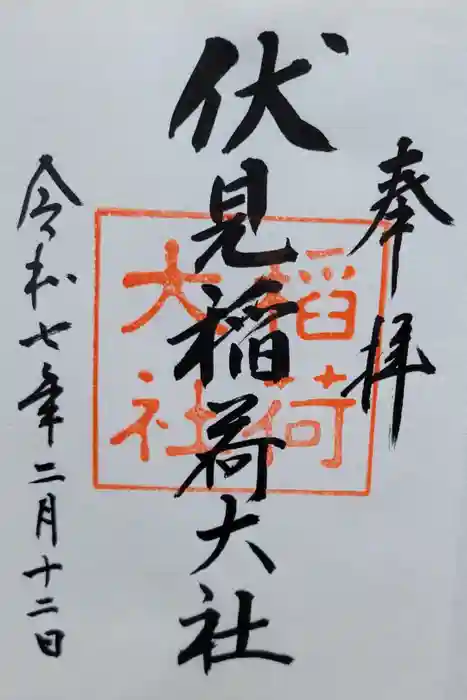 奉拝
伏見稲荷大社
稲荷
大社
令和七年二月十二日